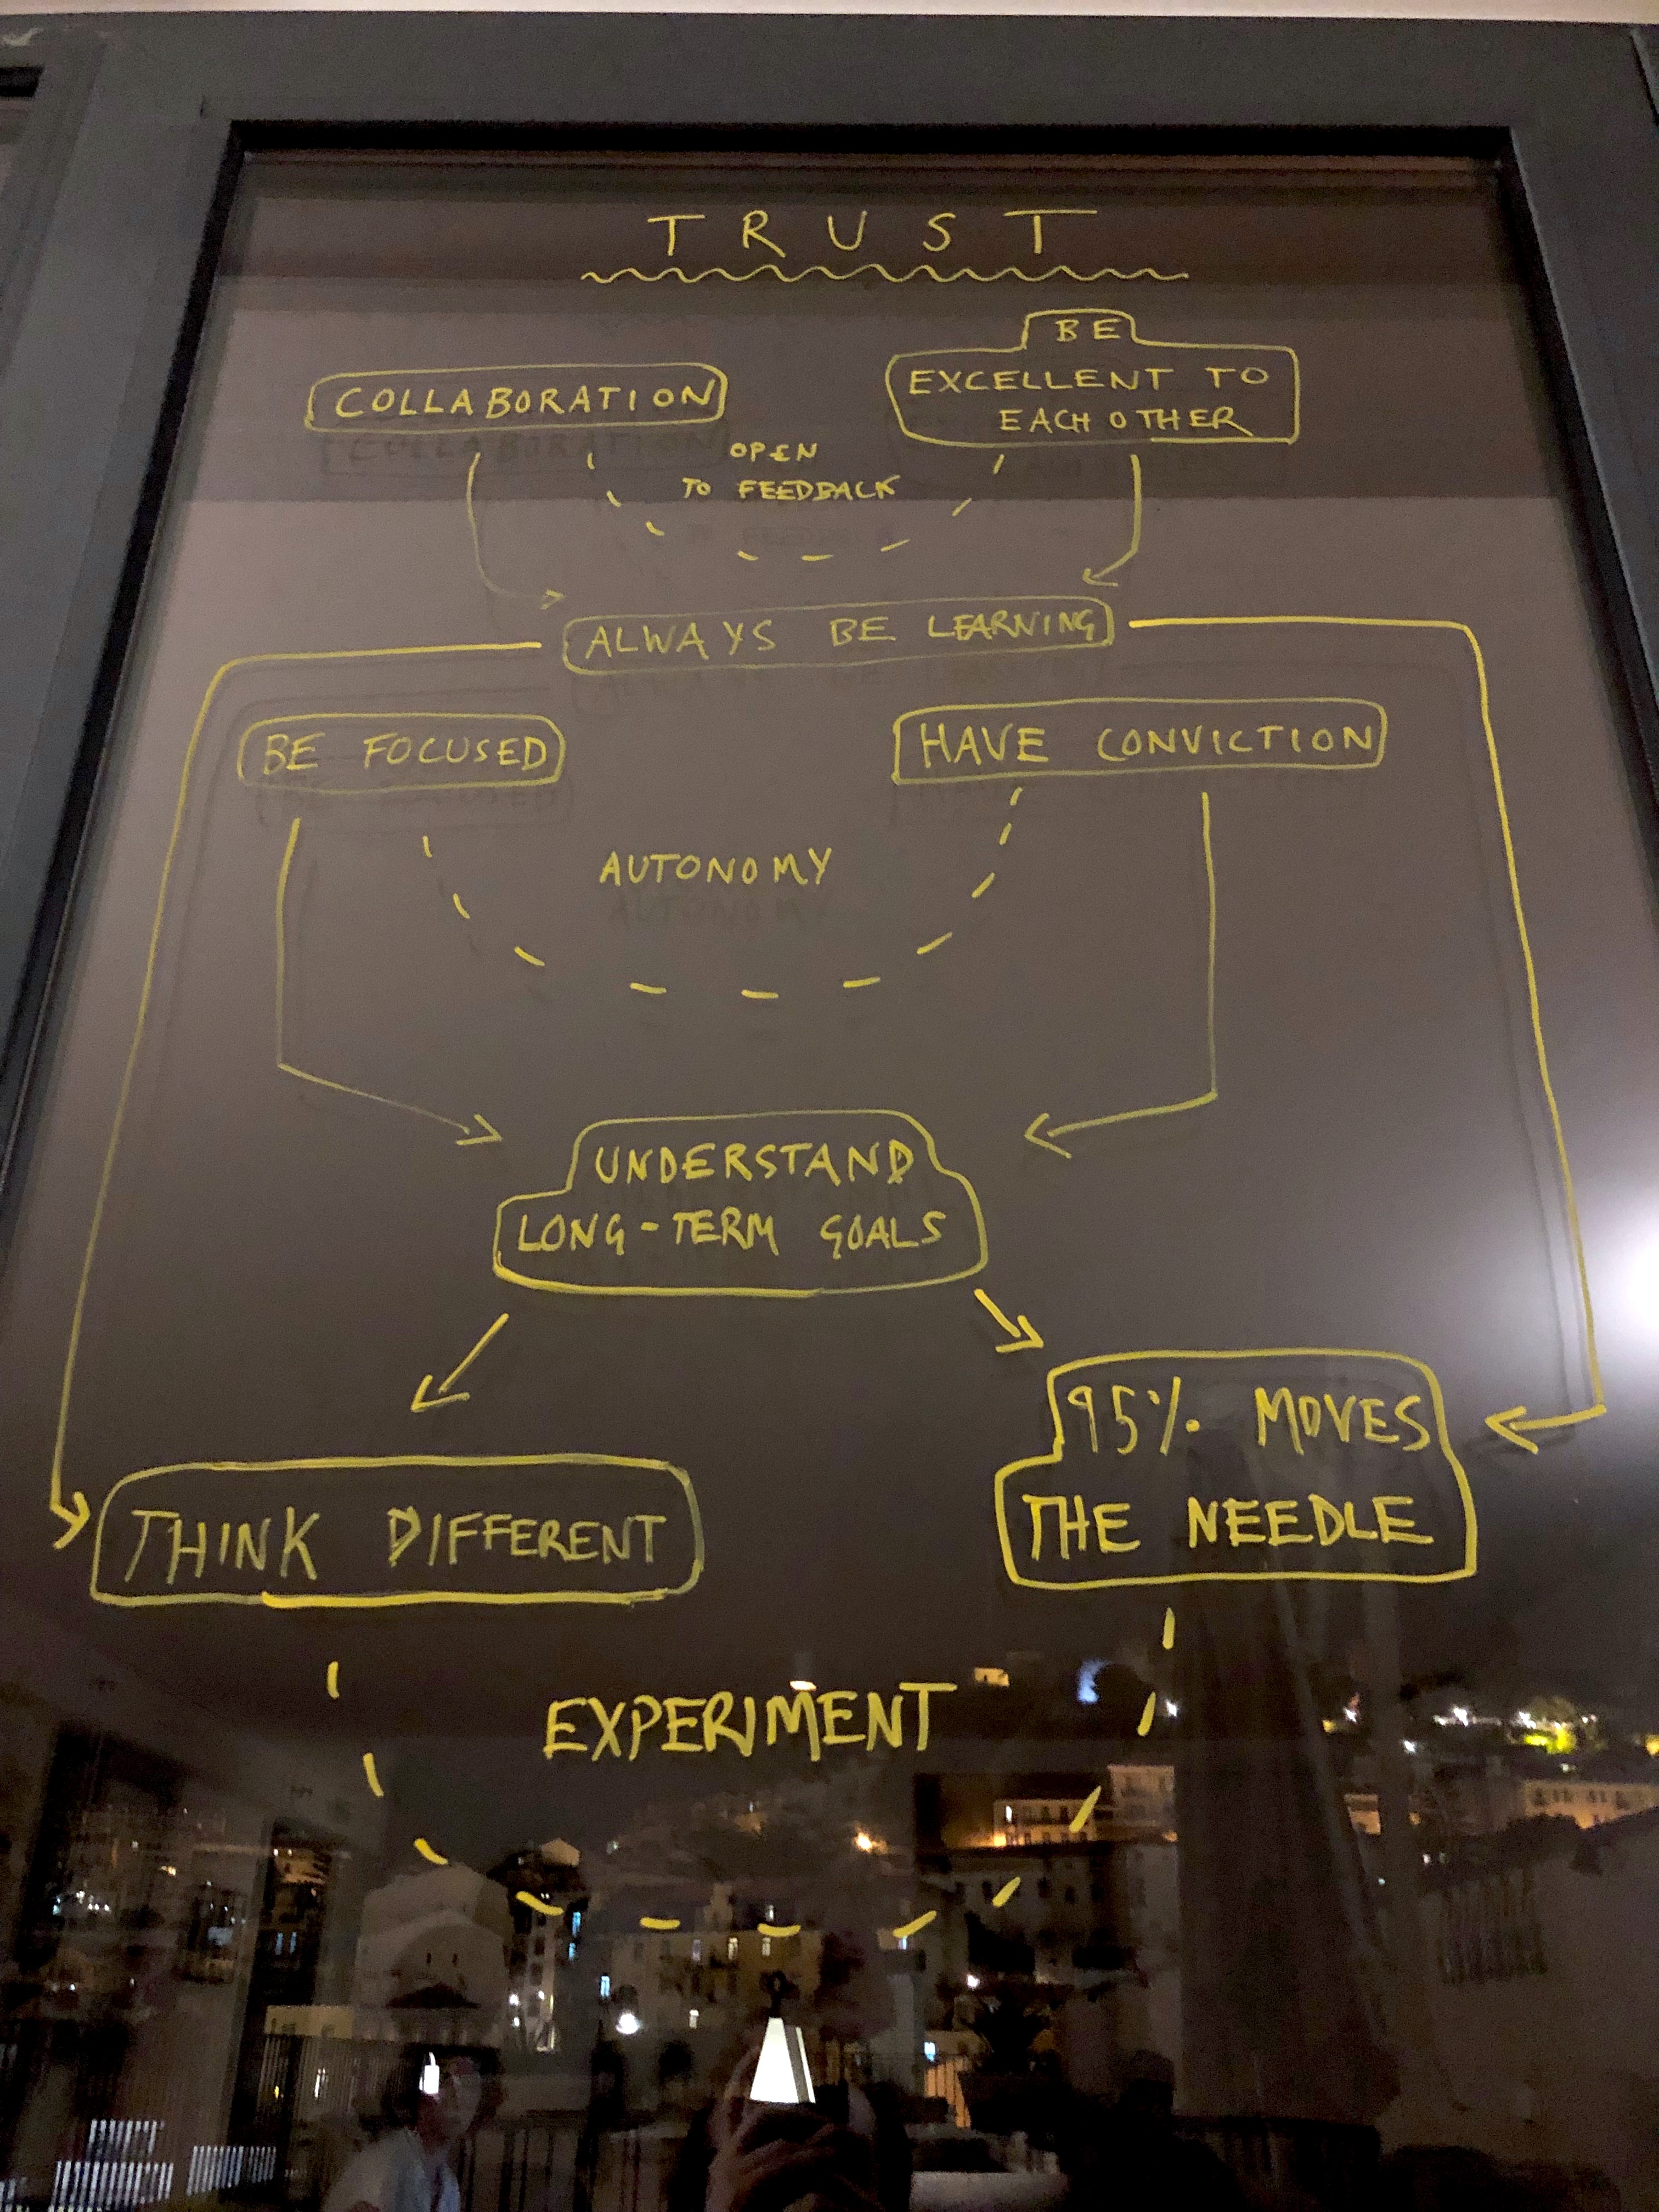 TRUST
COLLABORATION
BE
EXCELLENT TO
EACH OTHER
OPEN
TO FEEDBACK
ALWAYS BE LEARNING
BE FOCUSED
HAVE CONVICTION
AUTONOMY
UNDERSTAND
LONG-TERM GOALS
THINK DIFFERENT
95% MOVES
THE NEEDLE
EXPERIMENT